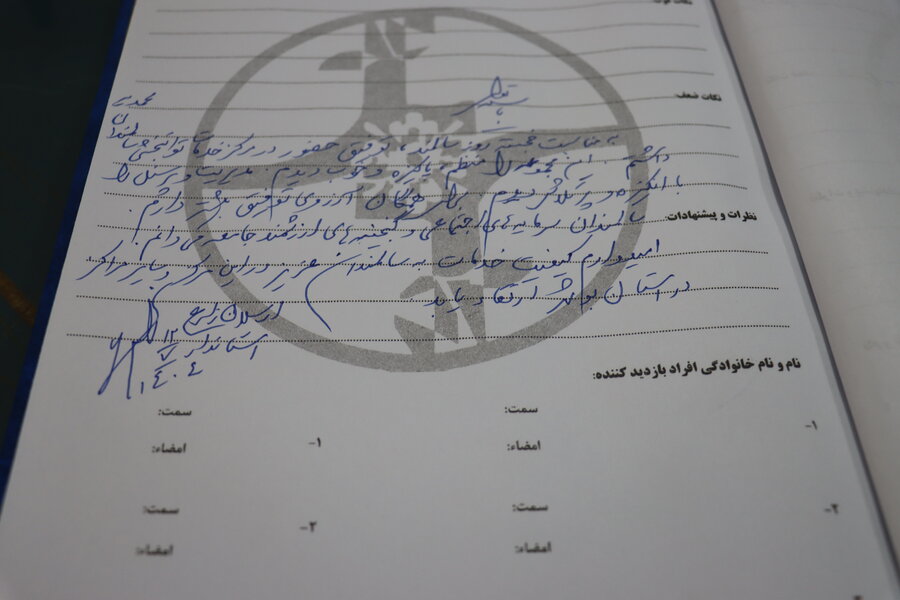 نکات قوت:
نکات ضعف:
به مناسبت خجسته روز سالمند، توفیق حضور در مرکز خدمات توانبخشی سالمندان
داشتم. این مجموعه را منظم، پاکیزه و خوب دیدم. مدیریت و پرسنل را
با انگیزه و پرتلاش دیدم. برای همگان آرزوی توفیق بیشتر دارم.
نظرات و پیشنهادات:
سالمندان سرمایه‌های اجتماعی و گنجینه‌های ارزشمند جامعه می‌دانم.
امیدوارم کیفیت خدمات به سالمندان عزیز در این مرکز و سایر مراکز
در استان بوشهر ارتقاء یابد
ارسلان زارع
استاندار
۱۴۰۴
نام و نام خانوادگی افراد بازدید کننده:
۱- سمت: ۱- سمت:
امضاء: امضاء:
۲- سمت: ۲- سمت:
امضاء: امضاء: